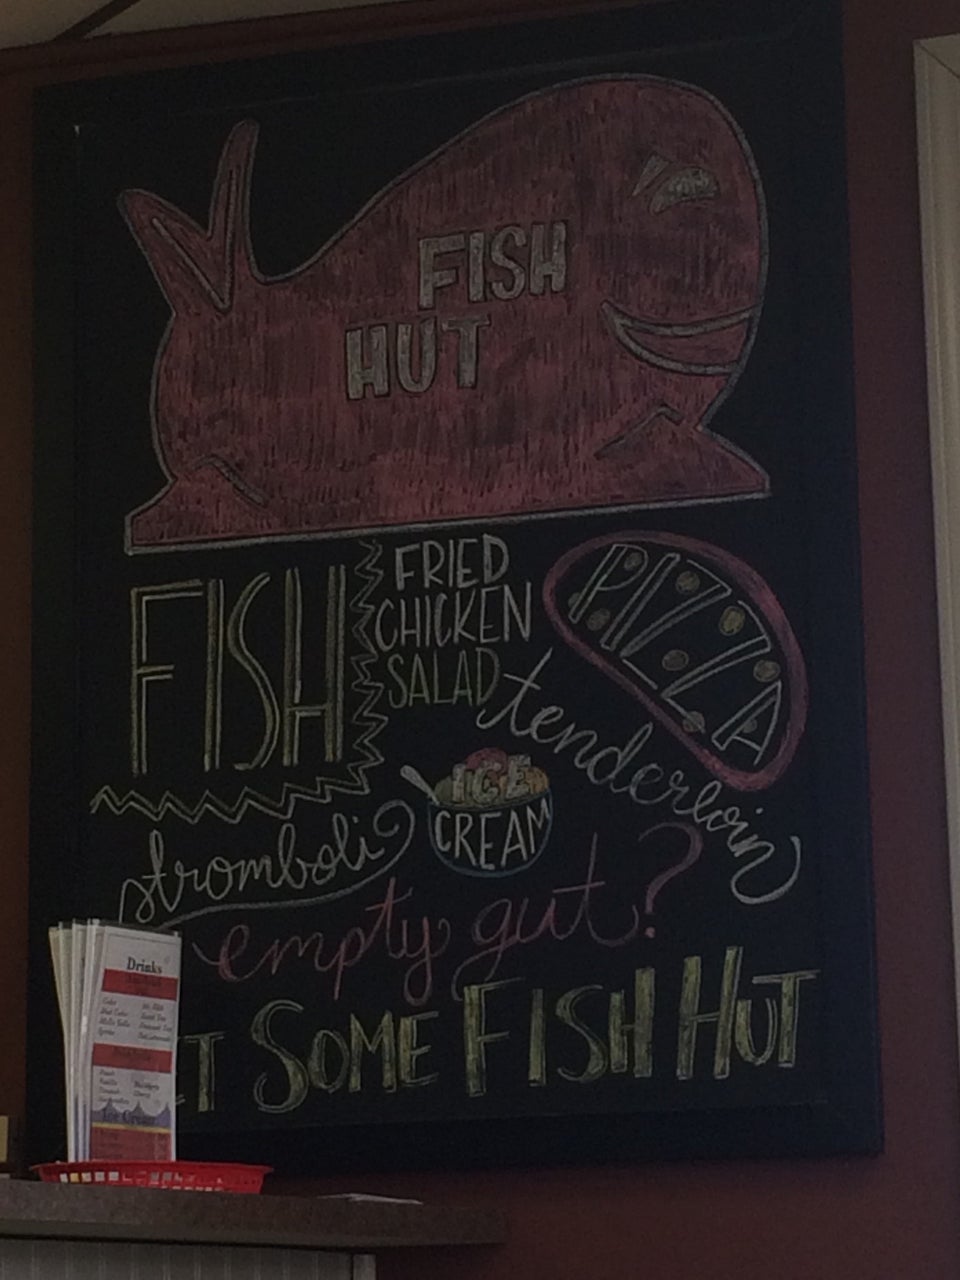 FISH
HUT
FISH
FRIED
CHICKEN
SALAD
PIZZA
tenderloin
ICE
CREAM
stromboli
empty gut?
T SOME FISH HUT
Drinks
Ice Cream